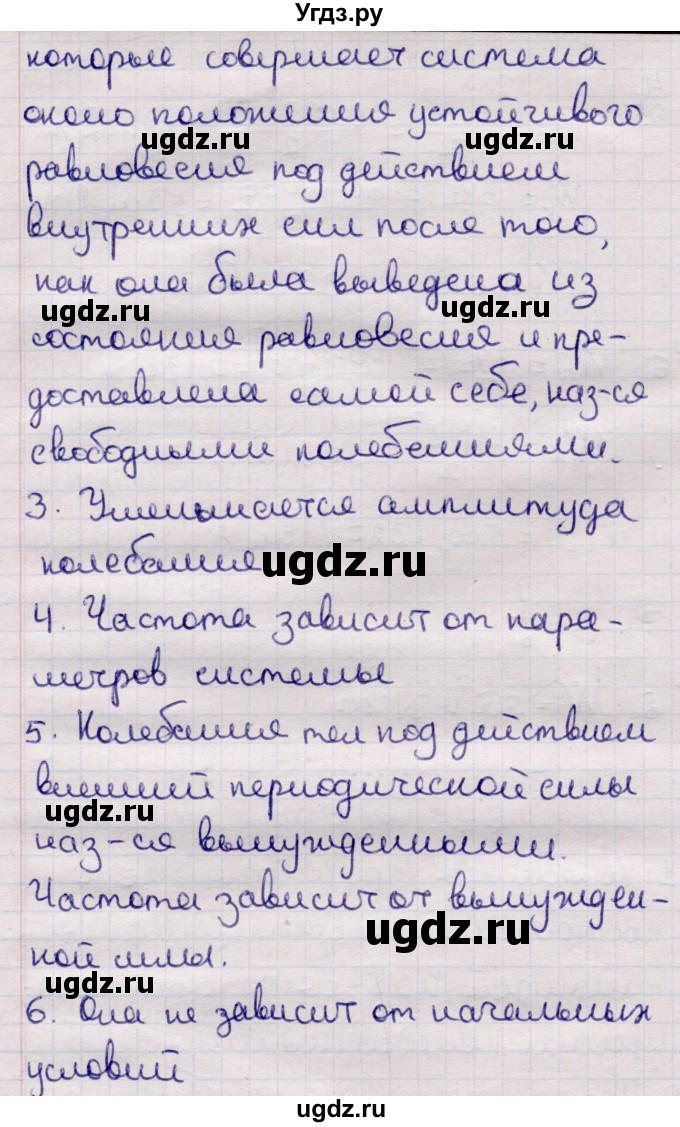 Угдз.ру
которые совершает система
около положения устойчивого
ugdz.ru ugdz.ru
равновесия под действием
внутренних сил после того,
как она была выведена из
ugdz.ru ugdz.ru
состояния равновесия и пре-
доставлена самой себе, наз-ся
свободными колебаниями.
3. Уменьшается амплитуда
колебания ugdz.ru
4. Частота зависит от пара-
метров системы
5. Колебания тел под действием
внешней периодической силы
ugdz.ru
наз-ся вынужденными.
Частота зависит от вынужден-
ugdz.ru
ной силы.
ugdz.ru
6. Она не зависит от начальных
условий
ugdz.ru